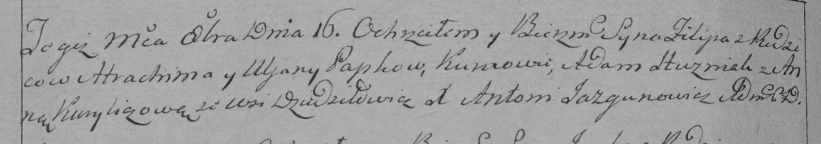 Tegiż Mca 8bra Dnia 16. Ochrzciłem y Bierzm Syna Filipa z Rodzi
cow Atrachima y Uljany Papkow, Kumowie, Adam Huzniak z An
ną Kurylczową ze wsi Dziedziłowicz X Antoni Jazgunowicz